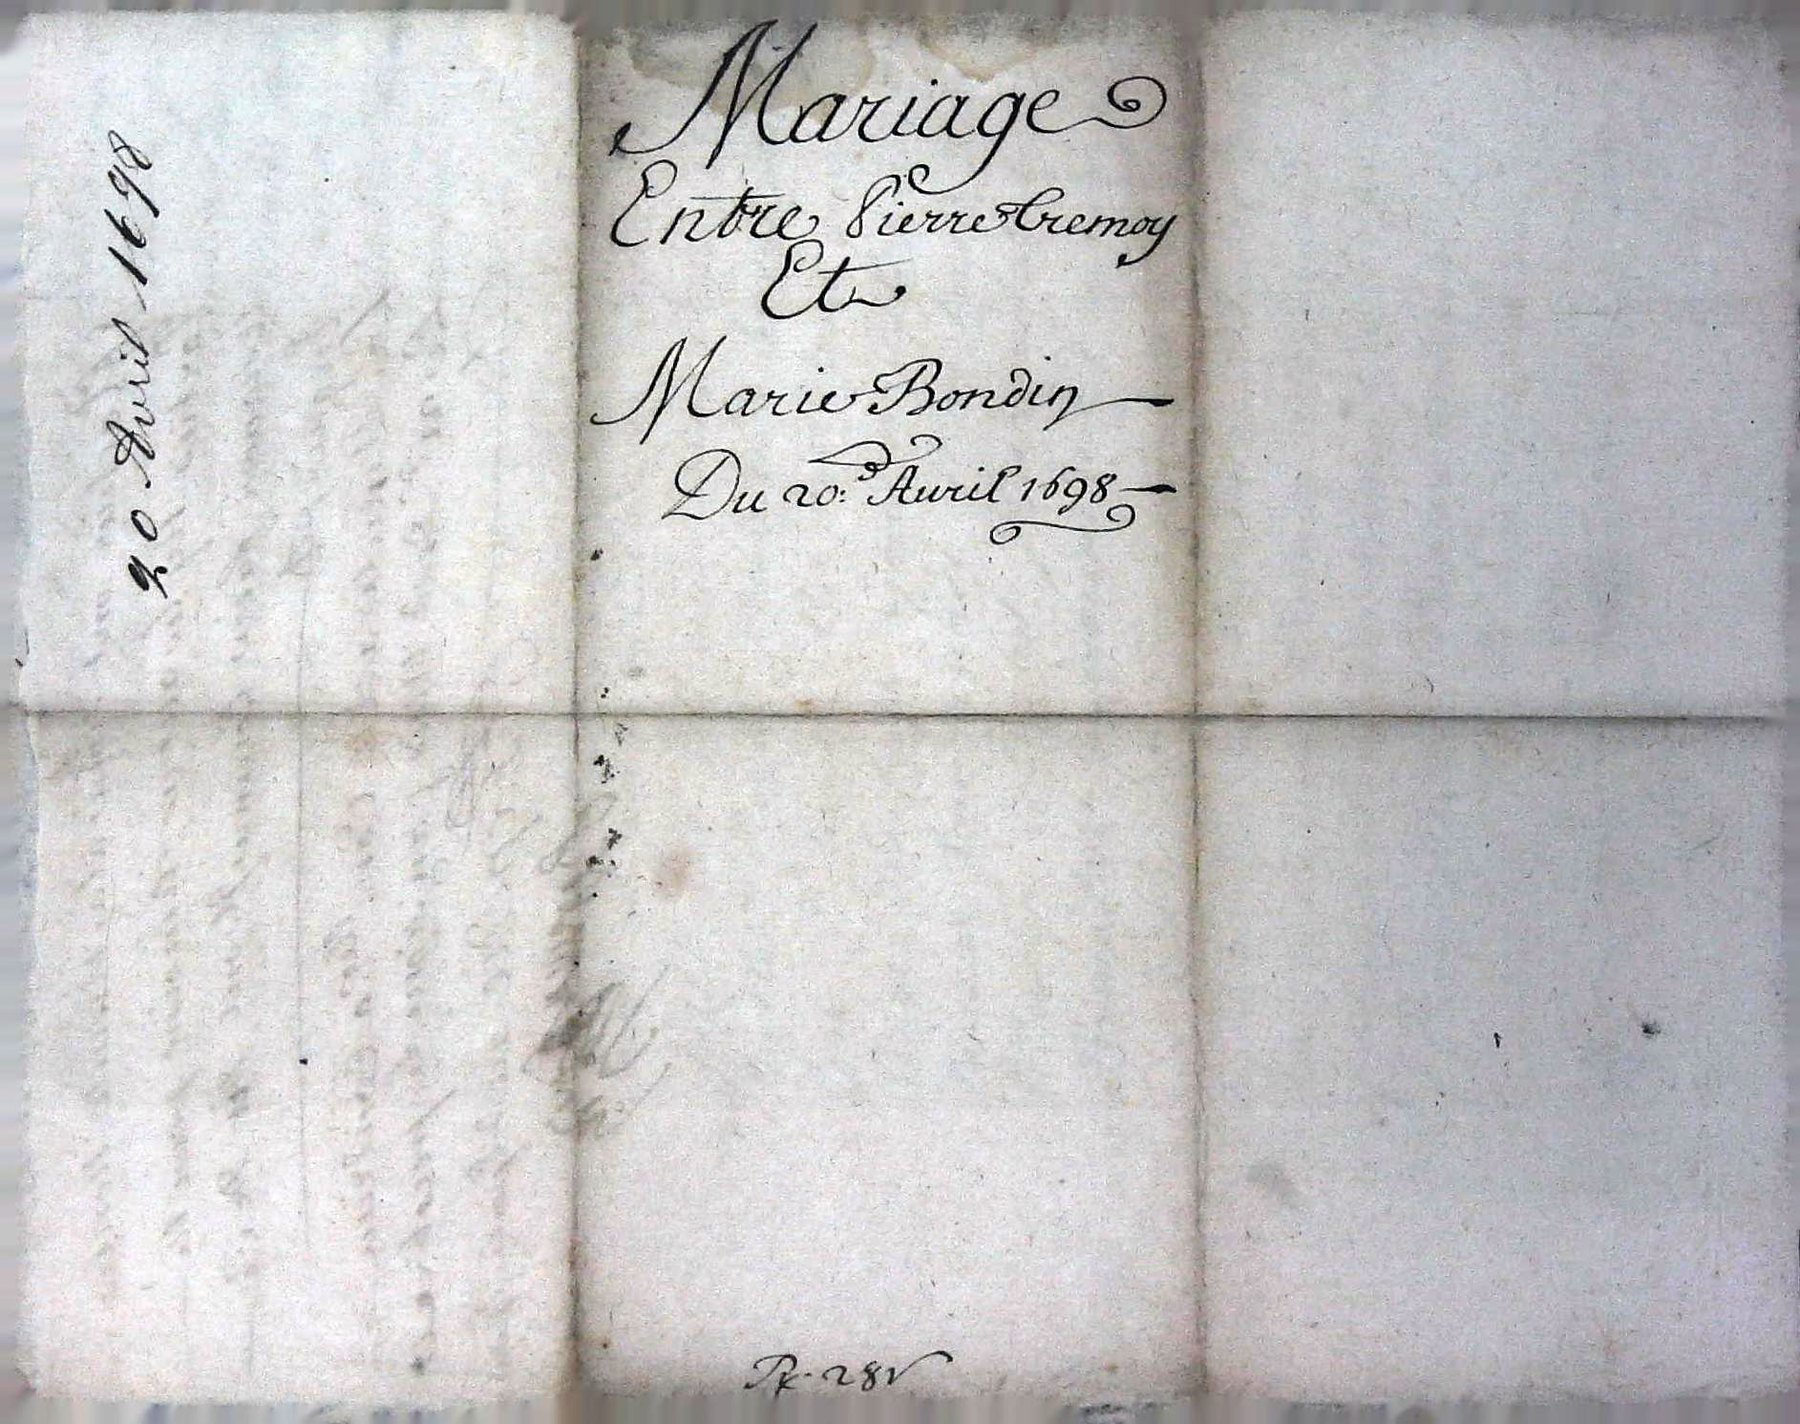 20 Avril 1698
Mariage
Entre Pierre Cremoy
Et
Marie Bondin
Du 20: Auril 1698